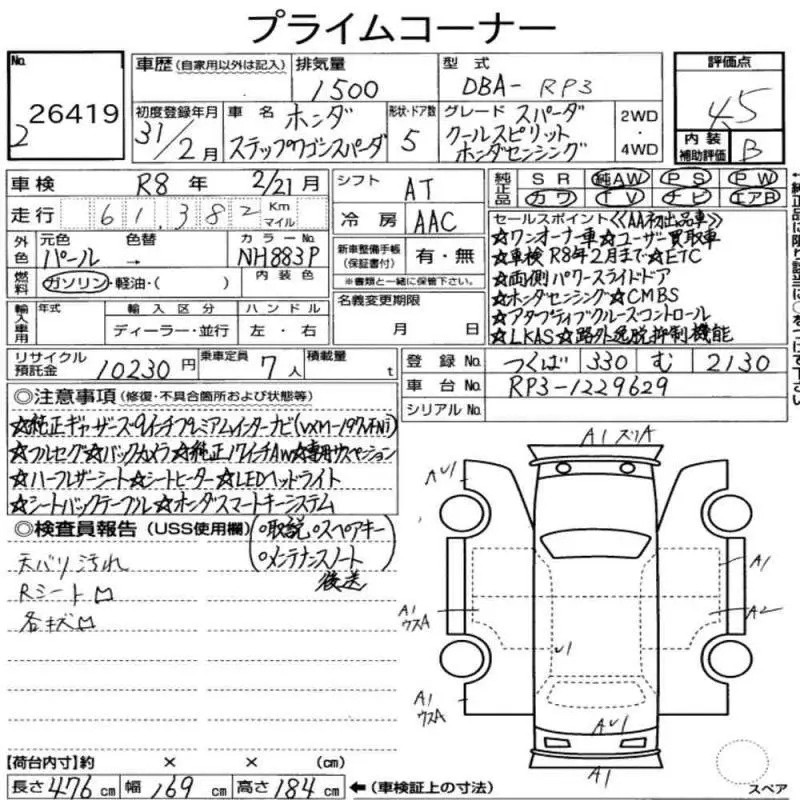 プライムコーナー
No. 26419
2
車歴 (自家用以外は記入)
排気量 1500
型式 DBA-RP3
評価点 4.5
初度登録年月 31/2月
車名 ホンダ ステップワゴンスパーダ
形状・ドア数 5
グレード スパーダ クールスピリット ホンダセンシング
2WD・4WD
内装補助評価 B
車検 R8年 2/21月
シフト AT
純正品 SR 純AW PS PW
カワ TV ナビ エアB
走行 61,382 Km マイル
冷房 AAC
セールスポイント《AA初出品車》
☆ワンオーナー車☆ユーザー買取車
☆車検R8年2月まで☆ETC
☆両側パワースライドドア
☆ホンダセンシング☆CMBS
☆アダプティブクルースコントロール
☆LKAS☆路外逸脱抑制機能
外色 元色 パール 色替 → カラーNo. NH883P
内装色
新車整備手帳(保証書付) 有・無
※書類と一緒に保管下さい。
燃料 ガソリン・軽油・( )
名義変更期限 月 日
輸入車用 年式 輸入区分 ハンドル
ディーラー・並行 左・右
リサイクル預託金 10230円
乗車定員 7人
積載量 t
登録No. つくば 330 む 2130
車台No. RP3-1229629
シリアルNo.
◎注意事項 (修復・不具合箇所および状態等)
☆純正ギャザーズ9インチプレミアムインターナビ(VXM-197VFNi)
☆フルセグ☆バックカメラ☆純正17インチAW☆専用サスペンション
☆ハーフレザーシート☆シートヒーター☆LEDヘッドライト
☆シートバックテーブル☆ホンダスマートキーシステム
◎検査員報告 (USS使用欄)
○取説○スペアキー
○メンテナンスノート
後送
天バリ汚れ
Rシート ロ
各キズ ロ
A1 ズリA
AU1
A1
A1 ウスA
A2
U1
A1 ウスA
AU1
A1
スペア
【荷台内寸】約 × × (cm)
長さ 476 cm 幅 169 cm 高さ 184 cm ←(車検証上の寸法)